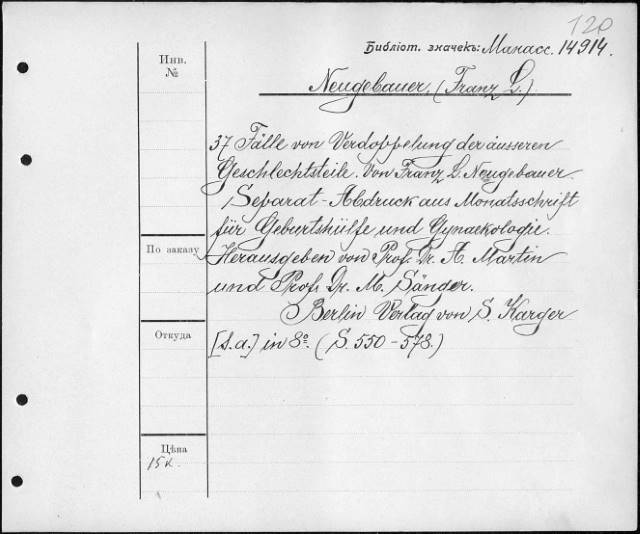 120
Библіот. значекъ: Манасс. 14914.
Инв.
№
Neugebauer, (Franz L.)
37 Fälle von Verdoppelung der äusseren
Geschlechtsteile. Von Franz L. Neugebauer
Separat-Abdruck aus Monatsschrift
für Geburtshülfe und Gynaekologie.
По заказу
Herausgeben von Prof. Dr. A. Martin
und Prof. Dr. M. Sänger.
Berlin Verlag von S. Karger
Откуда
[s.a.] in 8º. (S. 550-578.)
Цѣна
15 к.